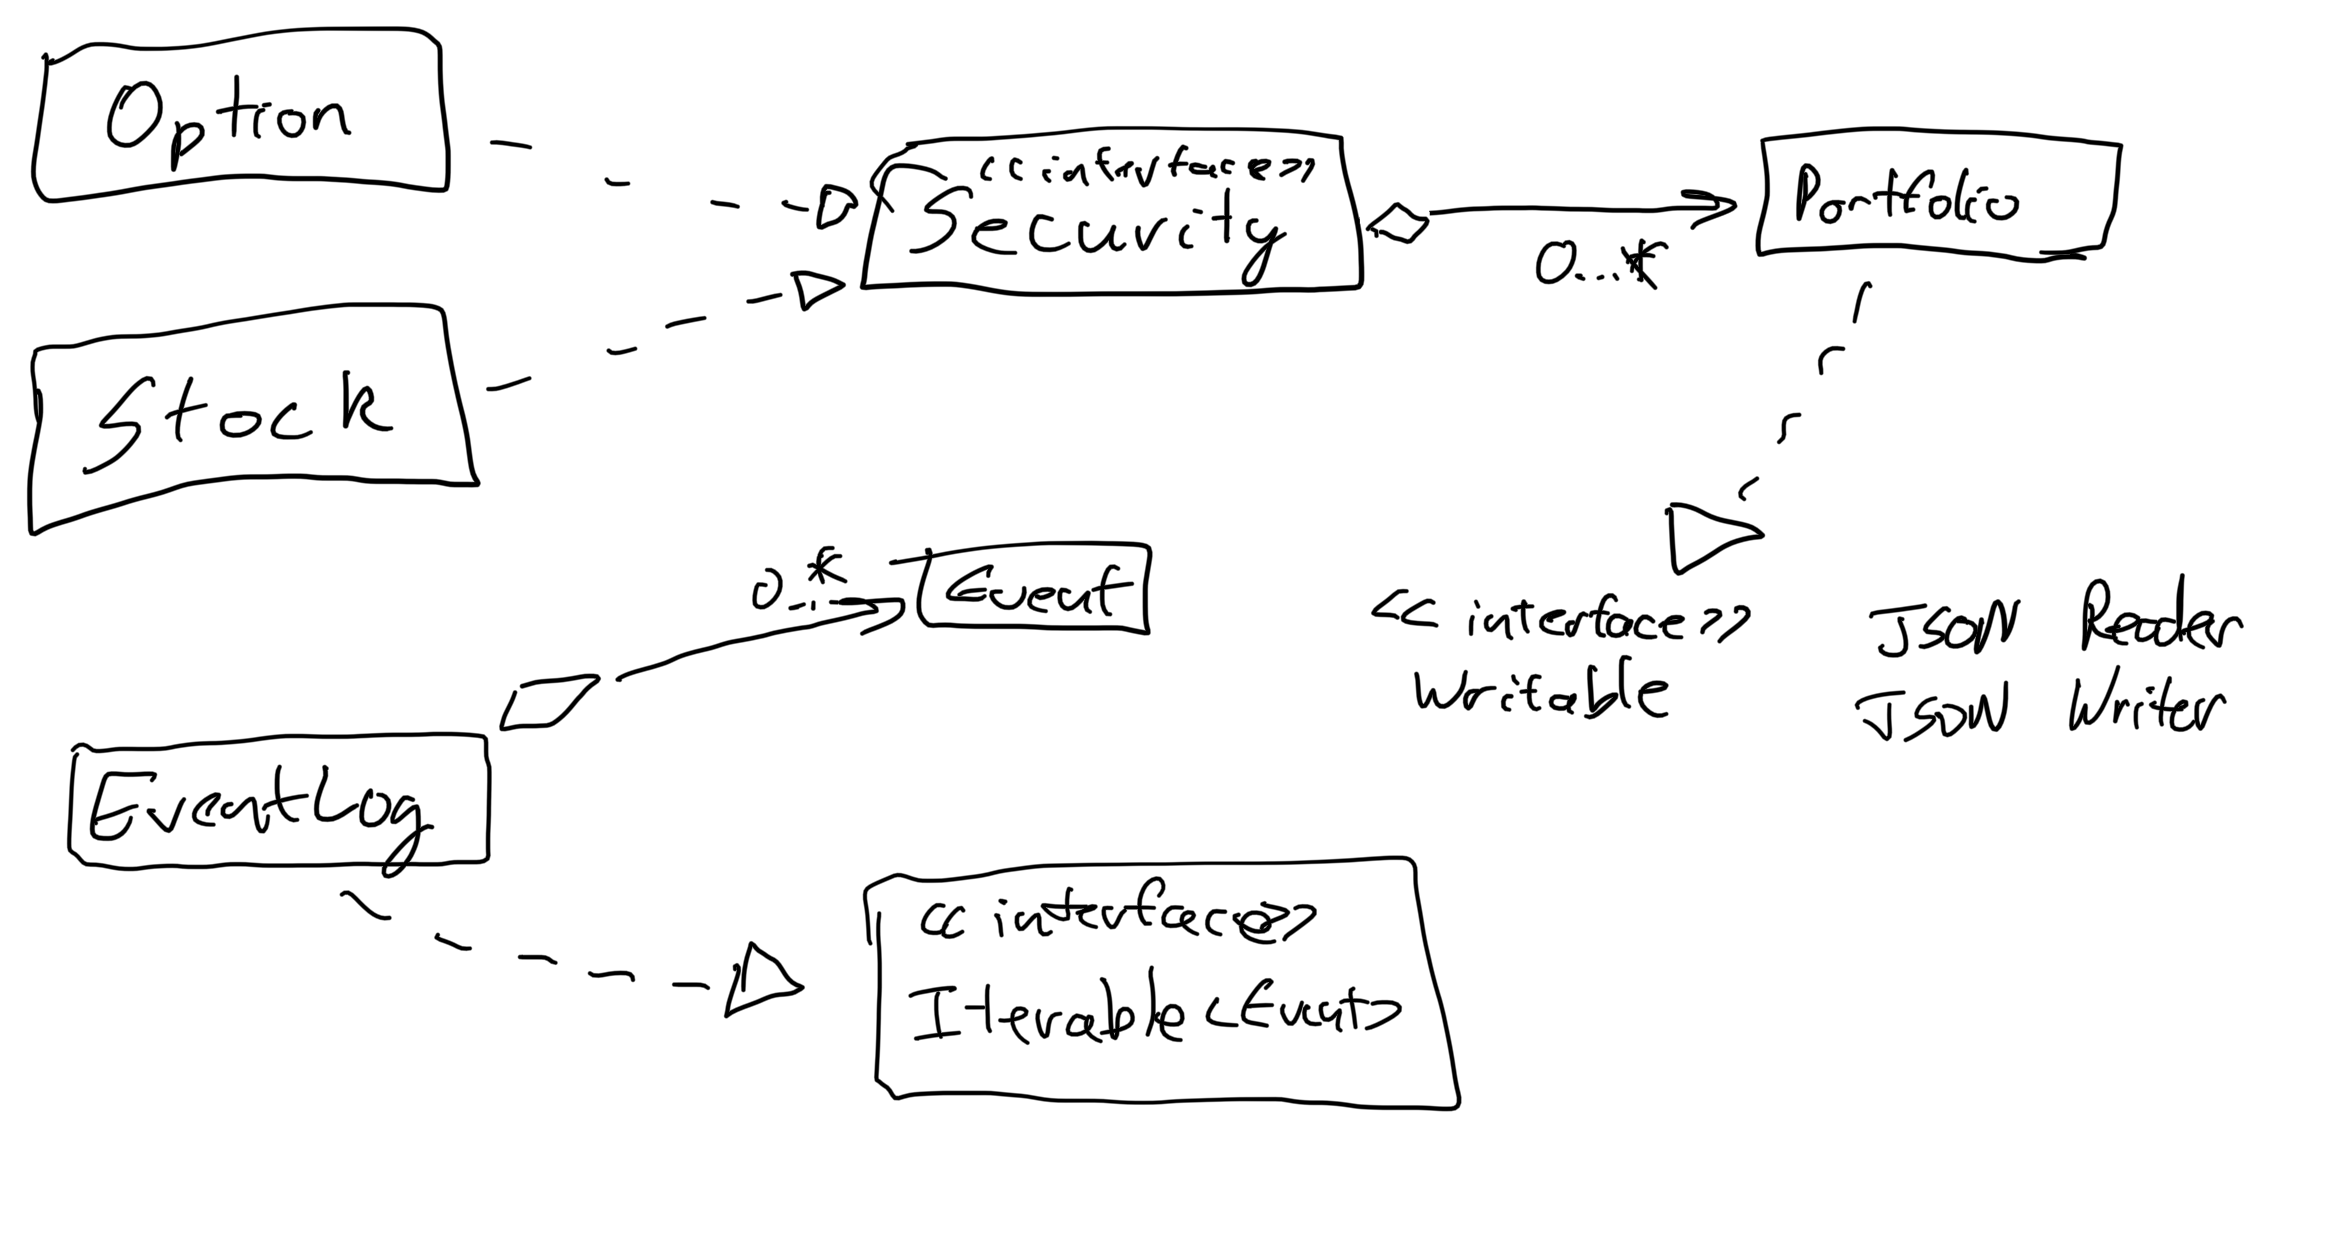 Option
<<interface>>
Security
Portfolio
0...*
Stock
0..*
Event
<<interface>>
Writable
JSON Reader
JSON Writer
EventLog
<<interface>>
Iterable<Event>